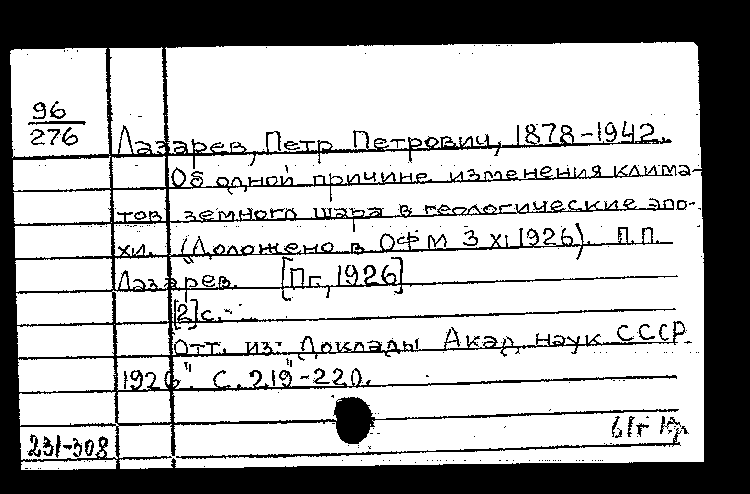 96
276
Лазарев, Петр Петрович, 1878-1942.
Об одной причине изменения клима-
тов земного шара в геологические эпо-
хи. (Доложено в ОФМ 3 XI 1926). П.П.
Лазарев. [Пг., 1926].
[2]с.-
Отт. из: "Доклады Акад. наук СССР
1926". С. 219-220.
231-308
61г